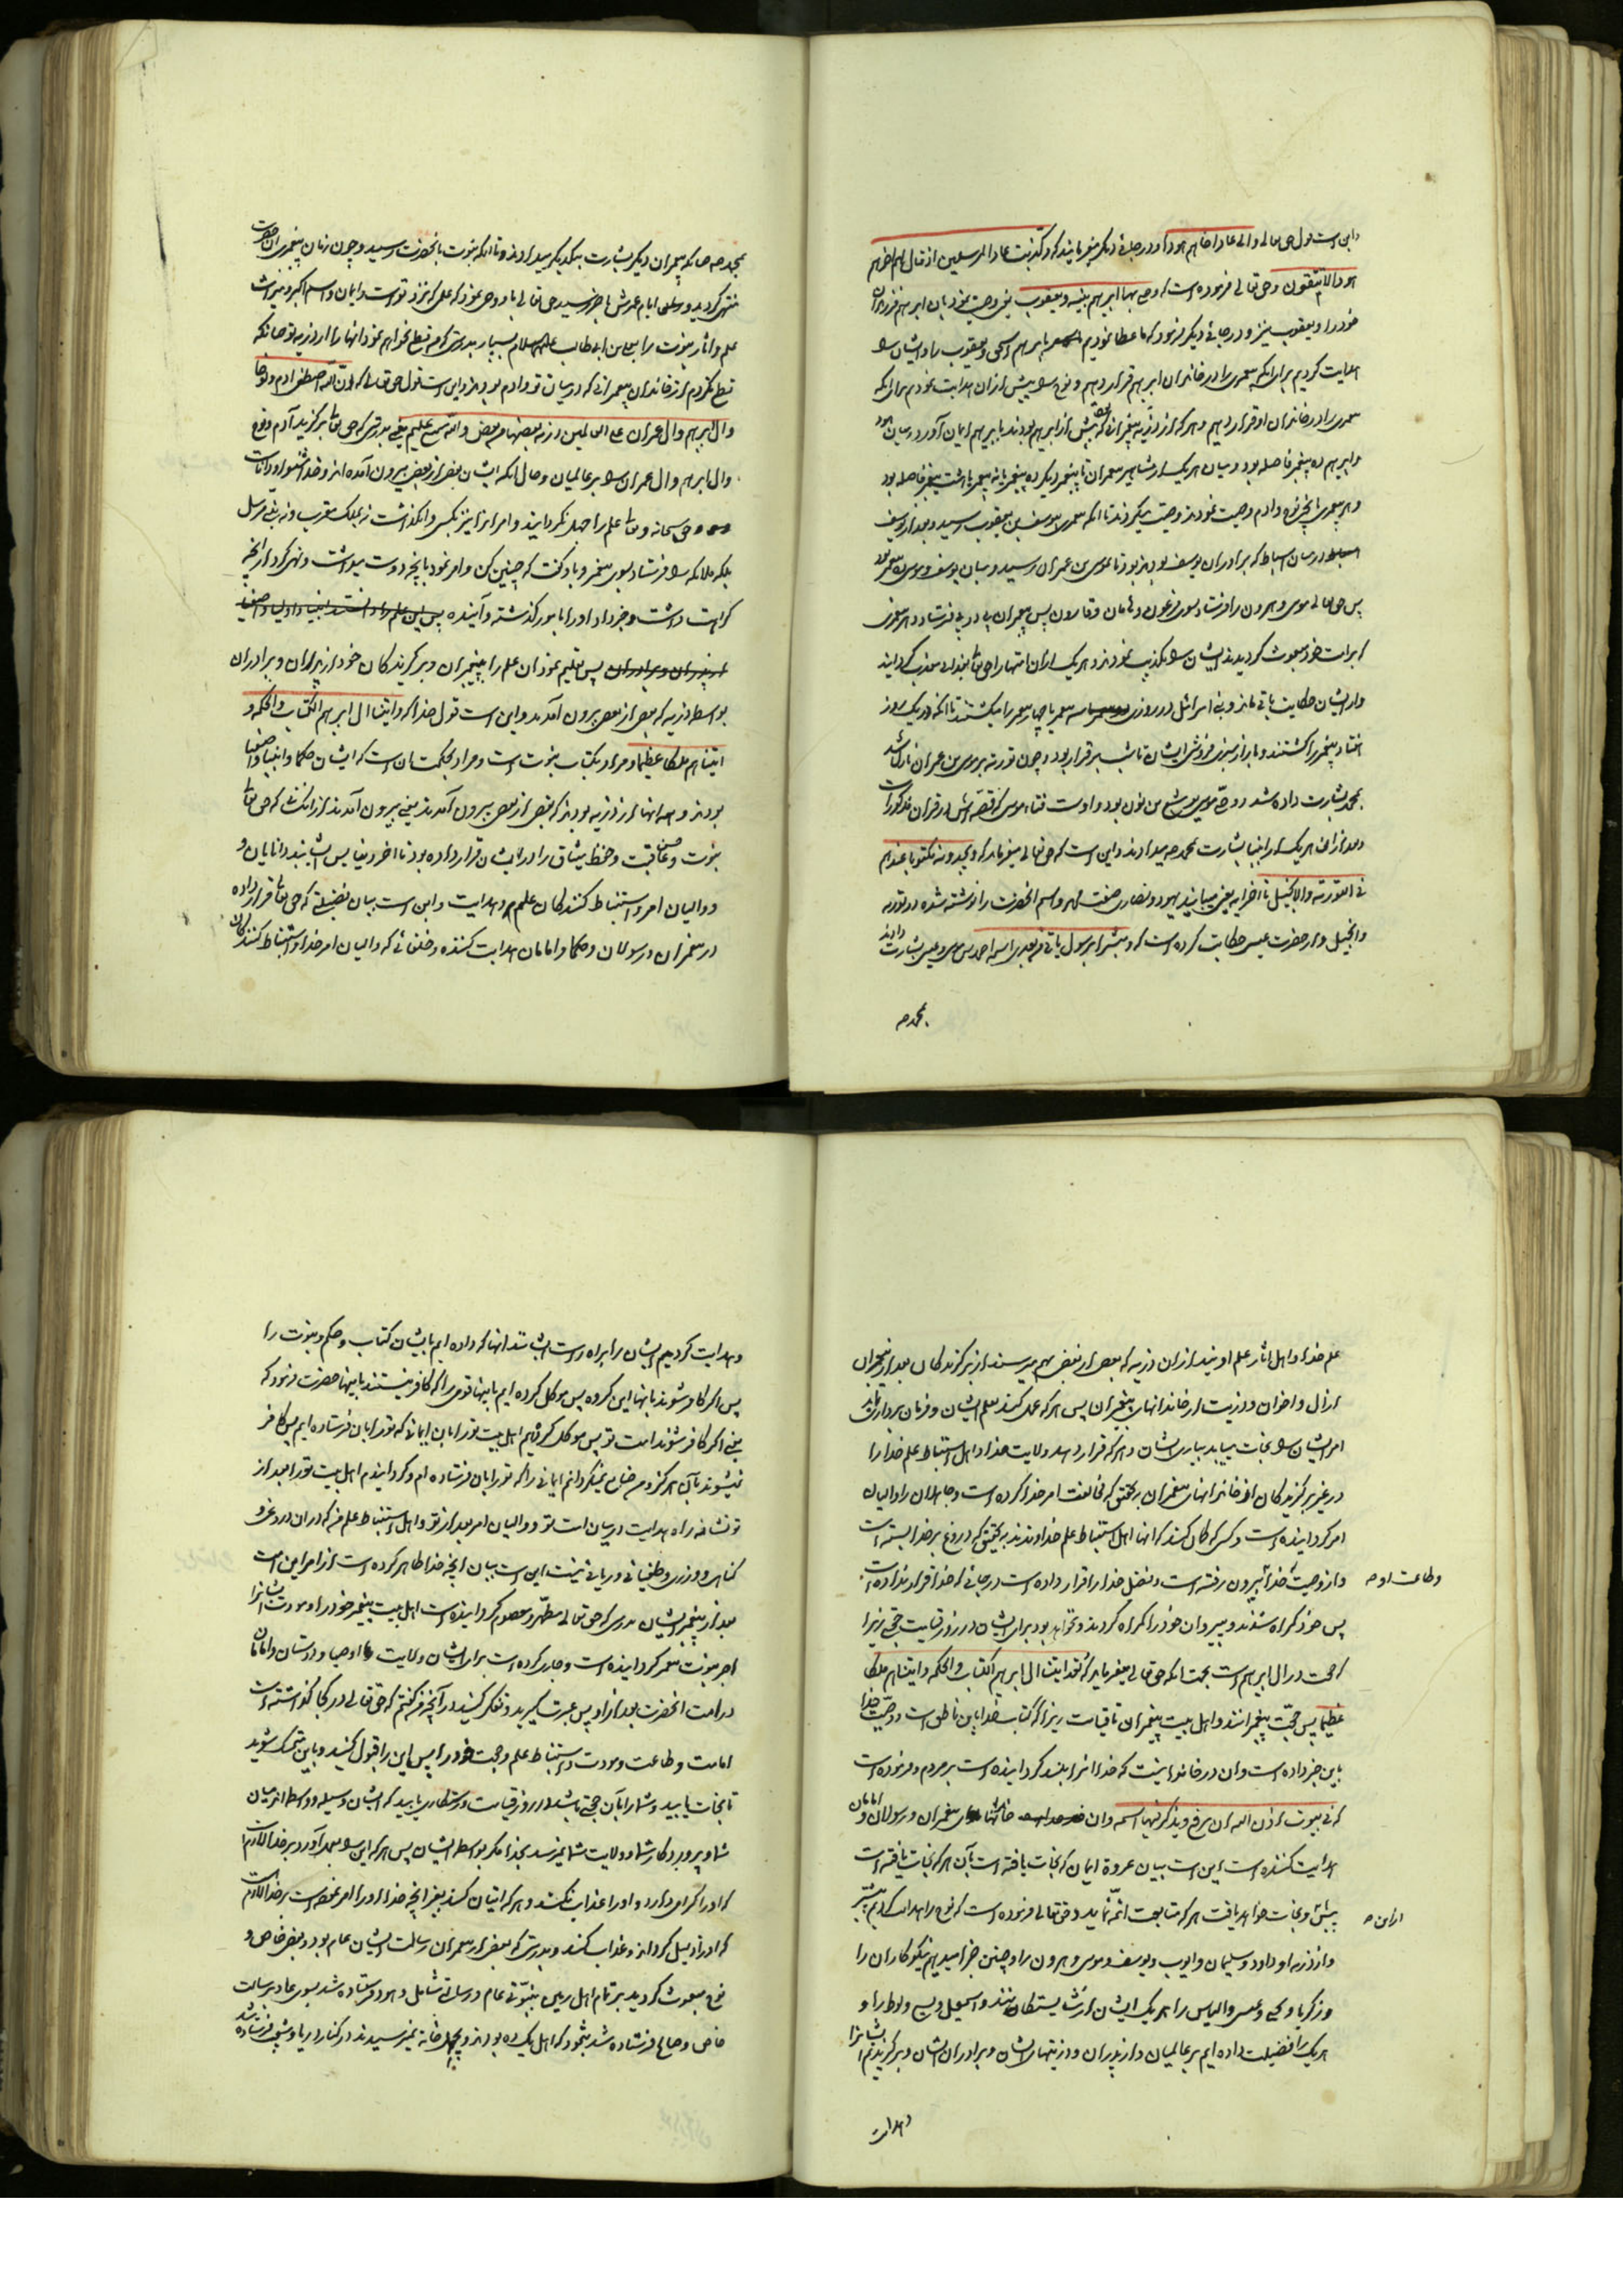 و این است قول حق تعالی و الی عاد اخاهم هودا و در جای دیگر میفرماید که و کذبت عاد المرسلین اذ قال لهم اخوهم
هود الا تتقون و حق تعالی فرموده است که و وصی بها ابراهیم بنیه و یعقوب یعنی وصیت نمود بآن ابراهیم فرزندان
خود را و یعقوب نیز و در جای دیگر فرمود که ما عطا نمودیم بابراهیم اسحق و یعقوب را و ایشان را
هدایت کردیم برای آنکه پیغمبری را در خاندان ابراهیم قرار دهیم و نوح را پیش از ان هدایت نمودیم برای آنکه
پیغمبری را در خاندان او قرار دهیم و هر که از ذریه پیغمبرانی که پیش از ابراهیم بودند بابراهیم ایمان آورد و میان هود
و ابراهیم ده پیغمبر فاصله بود و میان هر یک از مشاهیر پیغمبران تا پیغمبر دیگر ده پیغمبر یا نه پیغمبر یا هشت پیغمبر فاصله بود
و هر پیغمبری آنچه نوح و آدم وصیت نمودند وصیت میکردند تا آنکه پیغمبری بیوسف بن یعقوب رسید و بعد از یوسف
در میان اسباط که برادران یوسف بودند بود تا بموسی بن عمران رسید و میان یوسف و موسی ده پیغمبر بود
پس حق تعالی موسی و هرون را فرستاد بسوی فرعون و هامان و قارون پس پیغمبران پی در پی فرستاد و هر پیغمبری
که بر امت خود مبعوث گردیدند ایشان را تکذیب نمودند و هر یک از ان امتها را حق تعالی بعذابی معذب گردانید
و از ایشان حکایت باقی ماند و بنی اسرائیل در روزی سه پیغمبر یا چهار پیغمبر را میکشتند تا آنکه در یک روز
هفتاد پیغمبر را کشتند و بازار سبزی فروشی ایشان تا شب برقرار بود و چون توریه بر موسی بن عمران نازل شد
بمحمد بشارت داده شد و وصی موسی یوشع بن نون بود و اوست فتاء موسی که قصه اش در قران مذکور است
و بعد از ان هر یک از انبیا بشارت بمحمد ص میدادند و این است که حق تعالی میفرماید که و یجدونه مکتوبا عندهم
فی التوریة و الانجیل تا آخر آیه یعنی مییابند یهود و نصاری صفت محمد و اسم انحضرت را نوشته شده در توریه
و انجیل و از حضرت عیسی حکایت کرده است که و مبشرا برسول یاتی من بعدی اسمه احمد پس موسی و عیسی بشارت دادند
بمحمد ص
بمحمد ص چنانکه پیغمبران دیگر بشارت بیکدیگر میدادند و تا آنکه نبوت بانحضرت رسید و چون زمان پیغمبری ان حضرت
منتهی گردید و ایام عمرش بآخر رسید حق تعالی باو وحی نمود که علمی که نزد تو است و ایمان و اسم اکبر و میراث
علم و آثار نبوت را بعلی بن ابی طالب علیه السلام بسپار بدرستی که من قطع نخواهم نمود انها را از ذریه تو چنانکه
قطع نکردم از خاندان پیغمبرانی که در میان تو و آدم بودند و این است قول حق تعالی که ان الله اصطفی آدم و نوحا
و آل ابراهیم و آل عمران علی العالمین ذریه بعضها من بعض و الله سمیع علیم یعنی بدرستی که حق تعالی برگزید آدم و نوح
و آل ابراهیم و آل عمران را بر عالمیان و حال آنکه ایشان بعضی از بعضی بیرون آمده اند و خدا شنوا و داناست
حق سبحانه و تعالی علم را جهل نگردانید و امر انرا نیز بکسی وانگذاشت نه بملک مقرب و نه بنبی مرسل
بلکه ملائکه را فرستاد بسوی پیغمبر و باو گفت که چنین کن و امر نمود بانچه دوست میداشت و نهی کرد او را از انچه
کراهت داشت و خبر داد او را بامور گذشته و آینده
پس تعلیم نمود ان علم را بپیغمبران و برگزیدگان خود از پدران و برادران
بواسطه ذریه که بعضی از بعضی بیرون آمدند و این است قول خدا که و اتینا آل ابراهیم الکتاب و الحکمة و
اتیناهم ملکا عظیما و مراد بکتاب نبوت است و مراد بحکمت آن است که ایشان حکما و انبیا و اصفیا
بودند و همه انها از ذریه بودند که بعضی از بعضی بیرون آمدند یعنی بیرون آمدند از انکس که حق تعالی
نبوت و عاقبت و حفظ میثاق را در ایشان قرار داده بود تا آخر دنیا پس ایشانند دانایان و
و والیان امر و استنباط کنندگان علم و هدایت و این است بیان فضیلتی که حق تعالی قرار داده
در پیغمبران و رسولان و حکما و امامان هدایت کننده و خلفائی که والیان امر خدا و استنباط کنندگان
علم خدا و اهل آثار علم اویند از ان ذریه که بعضی از بعضی بهم میرسند از برگزیدگان بعد از پیغمبران
از آل و اخوان و ذریت از خاندانهای پیغمبران پس هر که عمل کند بعلم ایشان و فرمان برداری نماید
امر ایشان را نجات مییابد بیاری ایشان و هر که قرار دهد ولایت خدا و اهل استنباط علم خدا را
در غیر برگزیدگان از خانه انهای پیغمبران بتحقیق که مخالفت امر خدا کرده است و جاهلان را والیان
امر گردانیده است و کسی که گمان کند که انها اهل استنباط علم خداوندند بتحقیق که دروغ بر خدا بسته است
و از وصیت خدا بیرون رفته است و فضل خدا را قرار داده است در جائی که خدا قرار نداده است
و طاعت او ص
پس خود گمراه شدند و پیروان خود را گمراه کردند و نخواهد بود برای ایشان در روز قیامت حجتی زیرا
که حجت در آل ابراهیم است بجهت آنکه حق تعالی میفرماید که لقد اتینا آل ابراهیم الکتاب و الحکمة و اتیناهم ملکا
عظیما پس حجت پیغمبرانند و اهل بیت پیغمبران تا قیامت زیرا که کتاب خدا باین ناطق است و وصیت خدا
باین خبر داده است و ان در خانه هائیست که خدا انرا بلند گردانیده است بر مردم و فرموده است
که فی بیوت اذن الله ان ترفع و یذکر فیها اسمه و ان خانهای پیغمبران و رسولان و امامان
هدایت کننده است این است بیان عروه ایمان که نجات یافته است بآن هر که نجات یافته است
پیش از شما و نجات خواهد یافت هر که متابعت ائمه نماید و حق تعالی فرموده است که نوح را هدایت کردیم پیشتر
از این ص
و از ذریه او داود و سلیمان و ایوب و یوسف و موسی و هرون را و چنین جزا میدهیم نیکوکاران را
و زکریا و یحیی و عیسی و الیاس را هر یک ایشان از شایستگانند و اسمعیل و یسع و لوط را و
هر یک را فضیلت داده ایم بر عالمیان و از پدران و ذریتهای ایشان و برادران ایشان و برگزیدیم ایشانرا
و هدایت
و هدایت کردیم ایشان را براه راست ایشانند انها که داده ایم بایشان کتاب و حکم و نبوت را
پس اگر کافر شوند بانها این گروه پس موکل کرده ایم بانها قومی را که کافر نیستند بانها حضرت فرمود که
یعنی اگر کافر شوند امت تو پس موکل کرده ایم اهل بیت تو را بان ایمانی که تو را بان فرستاده ایم پس کافر
نمیشوند بآن هرگز و من ضایع نمیگردانم ایمانی را که تو را بان فرستاده ام و گردانیدم اهل بیت تو را بعد از
تو نشانه راه هدایت در میان امت تو و والیان امر بعد از تو و اهل استنباط علم من که در ان دروغ و
گناهی و وزری و طغیانی و ریائی نیست این است بیان انچه خدا ظاهر کرده است از امر این امت
بعد از پیغمبر ایشان بدرستی که حق تعالی مطهر و معصوم گردانیده است اهل بیت پیغمبر خود را و مودت ایشانرا
اجر نبوت پیغمبر گردانیده است و جاری کرده است برای ایشان ولایت را و اوصیا و دوستان و امامان
در امت انحضرت بعد از او پس عبرت گیرید و تفکر کنید در آنچه من گفتم که حق تعالی در کجا گذاشته است
امامت و طاعت و مودت و استنباط علم و حجت خود را پس این را قبول کنید و باین متمسک شوید
تا نجات یابید و شما را بآن حجتی باشد در روز قیامت و رستگاری یابید که ایشان وسیله و واسطه اند میان
شما و پروردگار شما و ولایت شما نمیرسد بخدا مگر بواسطه ایشان پس هر که این را بعمل آورد بر خدا لازم است
که او را گرامی دارد و او را عذاب نکند و هر که اتیان کند بغیر انچه خدا او را امر نموده است بر خدا لازم است
که او را ذلیل گرداند و عذاب کند و بدرستی که بعضی از پیغمبران رسالت ایشان عام بود و بعضی خاص و
نوح مبعوث گردید بر تمام اهل زمین بنبوتی عام و رسالتی شامل و هود فرستاده شد بسوی عاد برسالت
خاص و صالح فرستاده شد بثمود که اهل یک ده بودند و بچهل خانه نمیرسیدند در کنار دریا و شعیب فرستاده شد